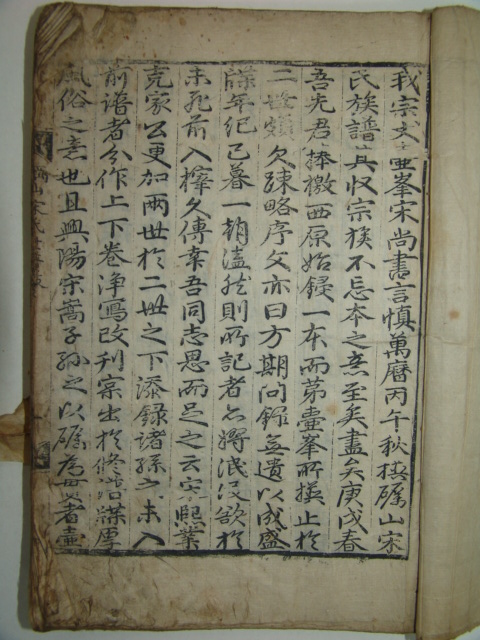 我宗丈壺峯宋尚書言愼萬曆丙午秋模礪山宋
氏族譜其收宗族不忘本之意至矣盡矣庚戌春
吾先君捧檄西原始鋟一本而第壺峯所撰止於
二世頗欠疎略序文亦曰方期問錄無遺以成盛
牒年紀已暮一朝溘然則所記者亦將泯沒欲於
未死前入梓久傳幸吾同志思而足之云宋熙業
克家公更加兩世於二世之下添錄諸孫之未入
前譜者分作上下卷淨寫改刊寔出於修浩牒厚
風俗之意也且興陽宋嵩子孫之以礪爲貫者壺
山宋氏